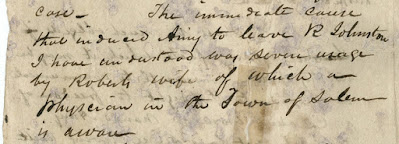 case - The immediate cause
that induced Amy to leave R Johnston
I have understood was severe usage
by Roberts wife of which a
physician in the Town of Salem
is awar